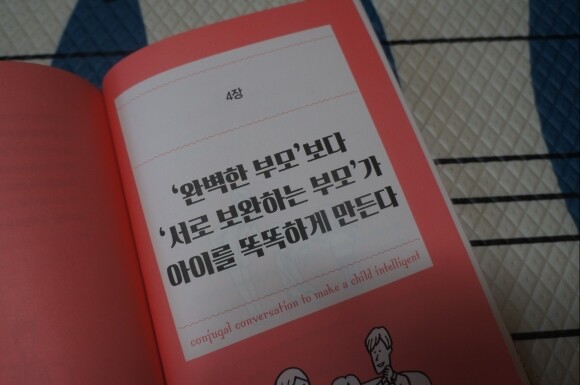 4장
‘완벽한 부모’보다
‘서로 보완하는 부모’가
아이를 똑똑하게 만든다
conjugal conversation to make a child intelligent